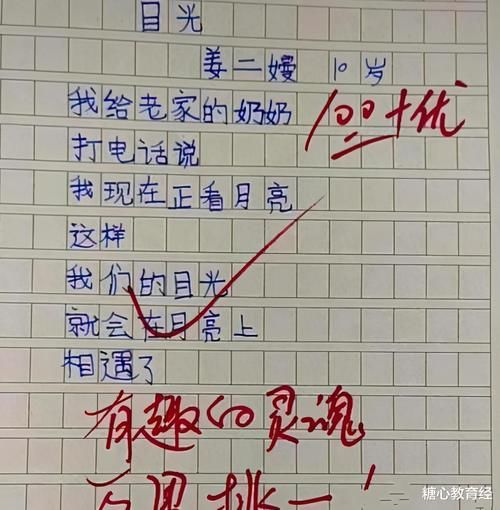 目光
姜二嫚 10岁
100+优
我给老家的奶奶
打电话说
我现在正看月亮
这样
我们的目光
就会在月亮上
相遇了
有趣的灵魂
百里挑一！
糖心教育经